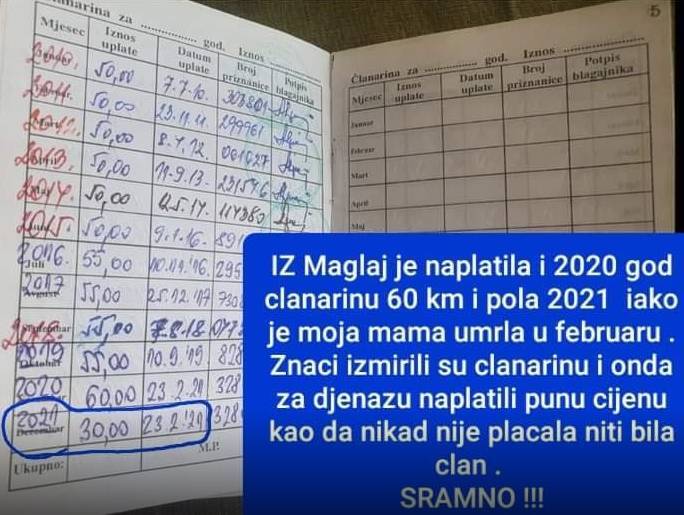 Članarina za ................ god. Iznos ................
Mjesec Iznos uplate Datum uplate Broj priznanice Potpis blagajnika
2010. 50,00 7.7.10. 303801
2011. 50,00 23.11.11. 299961
2012. 50,00 8.1.12. 061027
2013. 50,00 11.9.13. 231546
2014. 50,00 114380
2015. 50,00 9.1.16. 891
2016. Juli 55,00 10.11.'16. 295
2017 55,00 25.12.'17 730
2018. 55,00 7.8.18
2019 55,00 10.9.'19 828
2020 60,00 23.2.21 328
2021 Decembar 30,00 23.2.'21 328
M.P.
Ukupno:
5
Članarina za ................ god. Iznos ................
Mjesec Iznos uplate Datum uplate Broj priznanice Potpis blagajnika
Januar
Februar
Mart
April
Maj
IZ Maglaj je naplatila i 2020 god
clanarinu 60 km i pola 2021 iako
je moja mama umrla u februaru .
Znaci izmirili su clanarinu i onda
za djenazu naplatili punu cijenu
kao da nikad nije placala niti bila
clan .
SRAMNO !!!